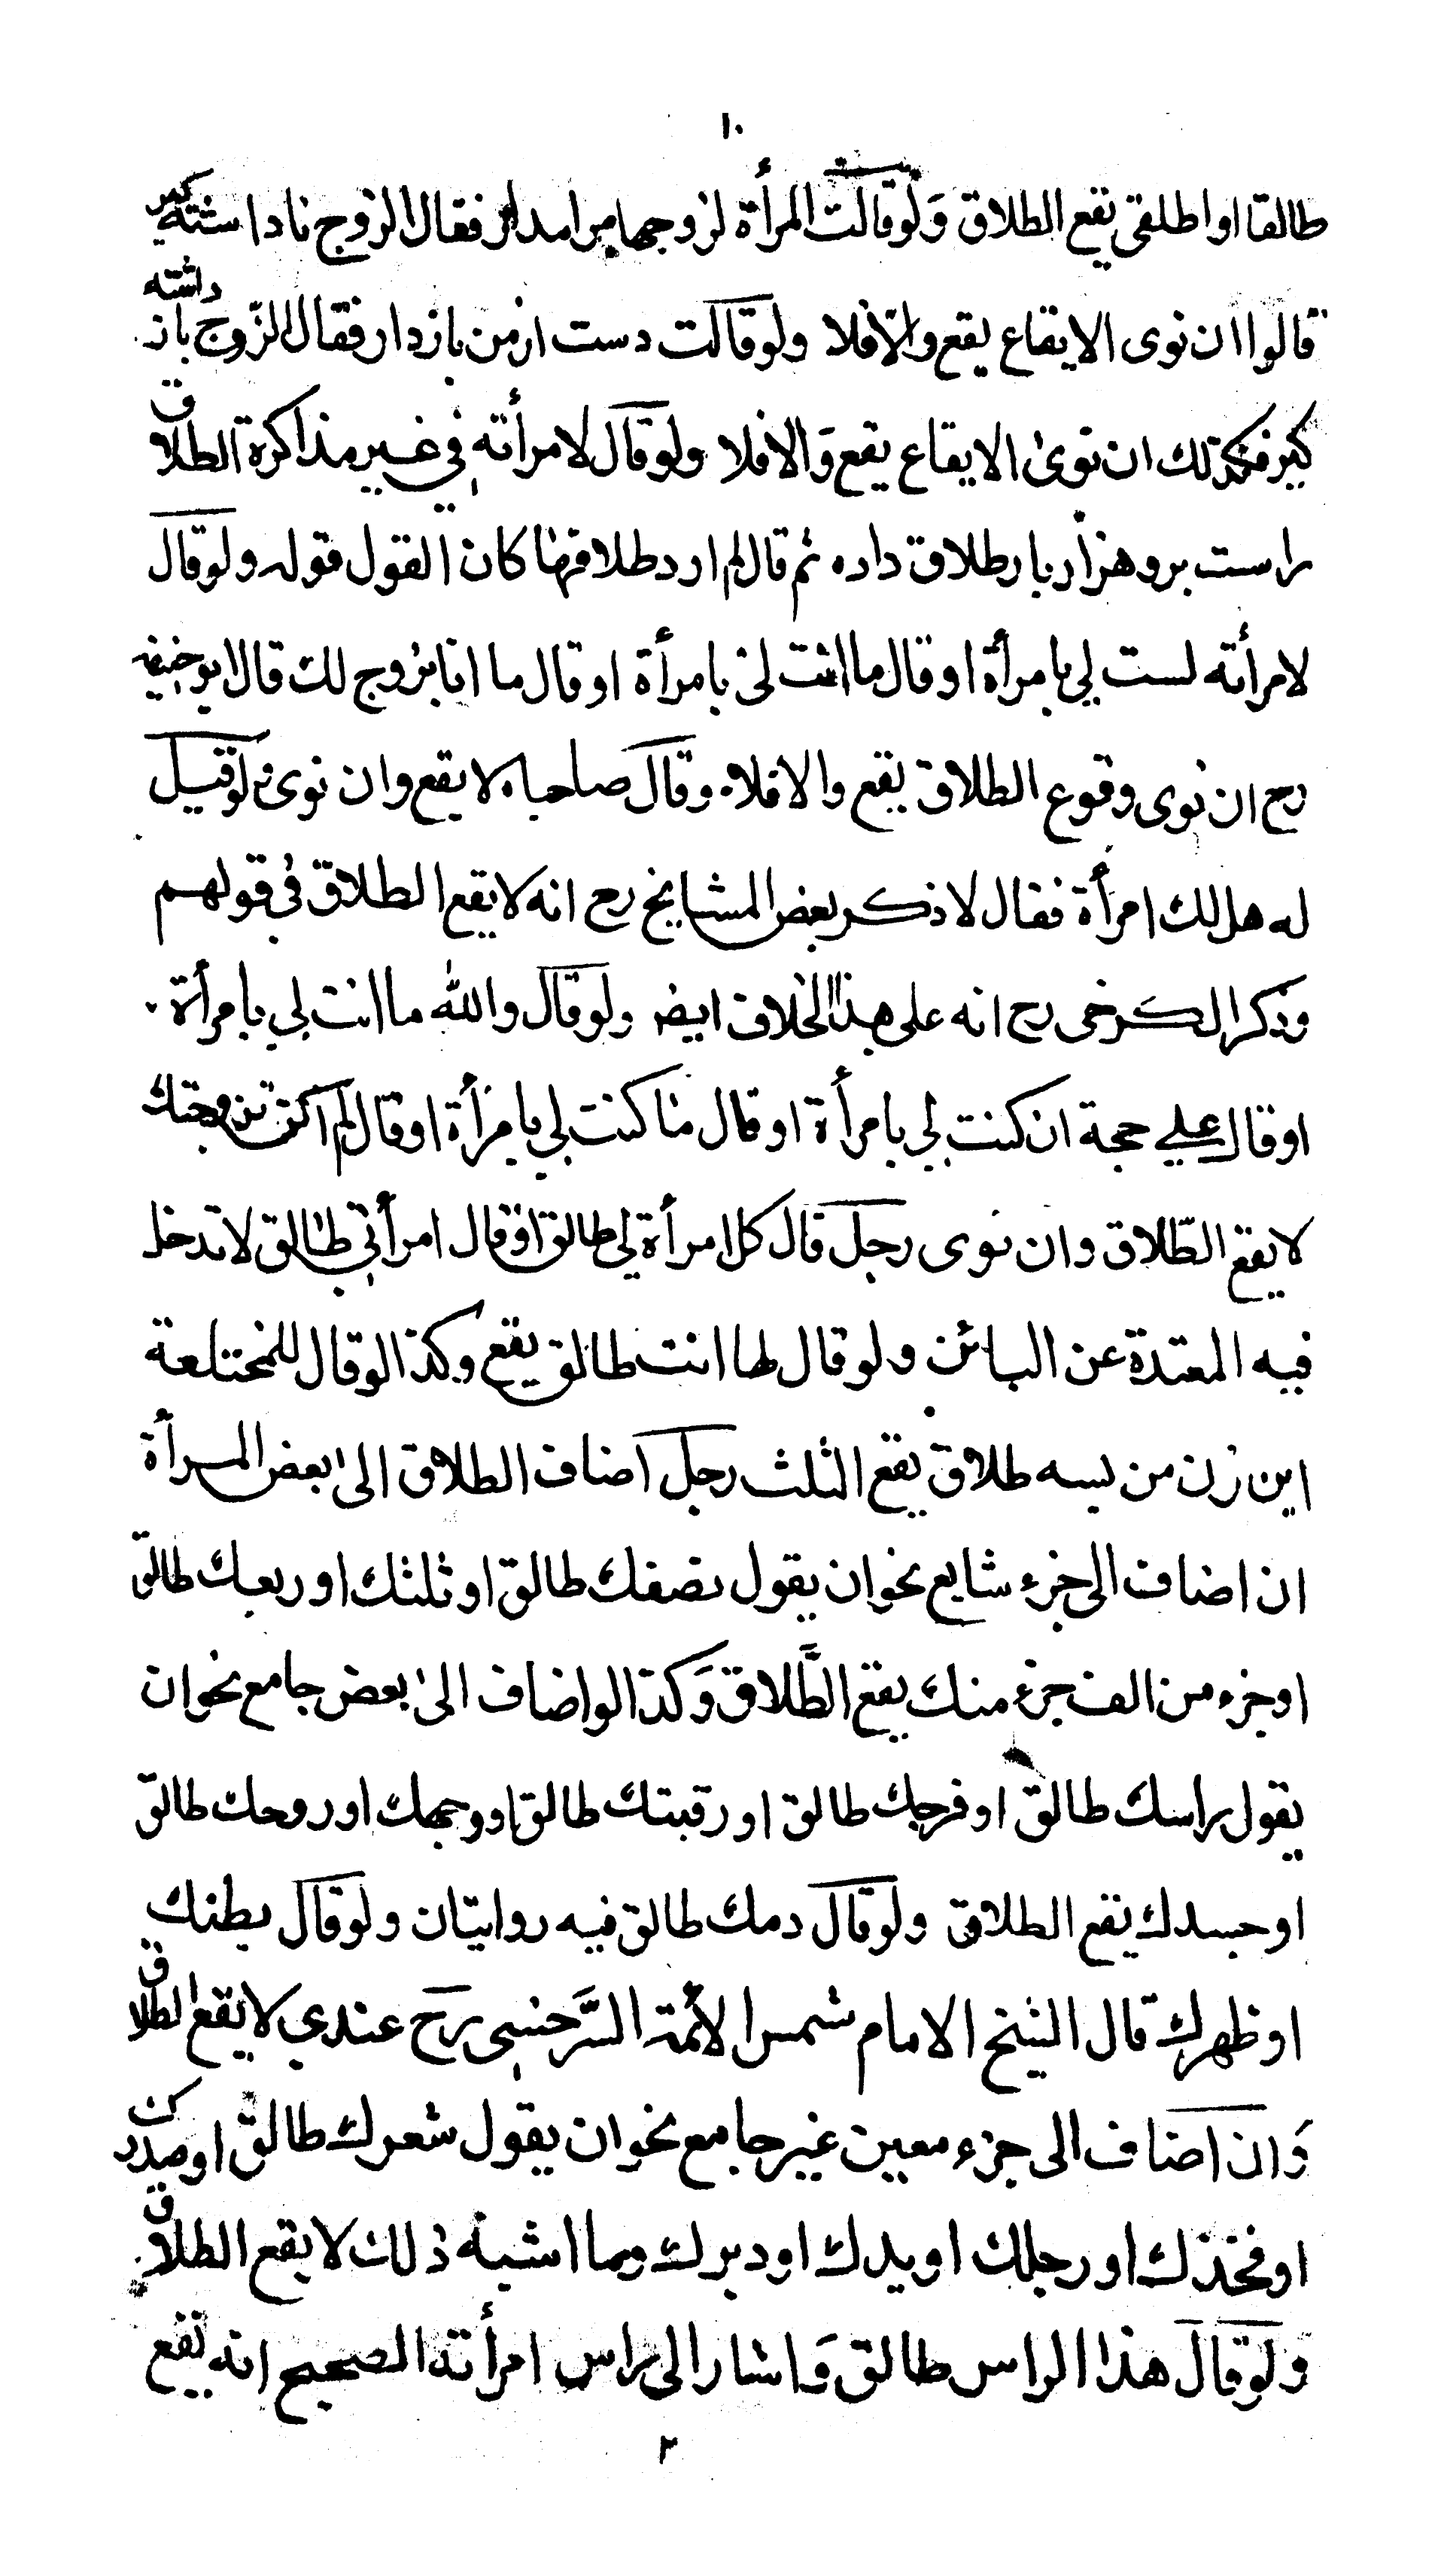 ١٠
طالقا او اطلقى يقع الطلاق ولو قالت المرأة لزوجها مرا مدار فقال الزوج نا داشته كير
قالوا ان نوى الايقاع يقع والا فلا ولو قالت دست از من باز دار فقال الزوج باز داشته
كير فكذلك ان نوى الايقاع يقع والا فلا ولو قال لامرأته في غير مذاكرة الطلاق
راست برو هزار بار طلاق داده ثم قال لم ارد طلاقها كان القول قوله ولو قال
لامرأته لست لي بامرأة او قال ما انت لى بامرأة او قال ما انا بزوج لك قال ابو حنيفه
رح ان نوى وقوع الطلاق يقع والا فلا وقال صاحباه لا يقع وان نوى ولو قيل
له هل لك امرأة فقال لا ذكر بعض المشايخ رح انه لا يقع الطلاق في قولهم
وذكر الكرخى رح انه على هذا الخلاف ايضا ولو قال والله ما انت لي بامرأة
او قال على حجة ان كنت لي بامرأة او قال ما كنت لي بامرأة او قال لم اكن تزوجتك
لا يقع الطلاق وان نوى رجل قال كل امرأة لي طالق او قال امرأتي طالق لا تدخل
فيه المعتدة عن البائن ولو قال لها انت طالق يقع وكذا لو قال للمختلعة
اين زن من بسه طلاق يقع الثلث رجل اضاف الطلاق الى بعض المرأة
ان اضاف الى جزء شايع نحو ان يقول نصفك طالق او ثلثك او ربعك طالق
او جزء من الف جزء منك يقع الطلاق وكذا لو اضاف الى بعض جامع نحو ان
يقول راسك طالق او فرجك طالق او رقبتك طالق او وجهك او روحك طالق
او جسدك يقع الطلاق ولو قال دمك طالق فيه روايتان ولو قال بطنك
او ظهرك قال الشيخ الامام شمس الأئمة السرخسى رح عندي لا يقع الطلاق
وان اضاف الى جزء معين غير جامع نحو ان يقول شعرك طالق او صدرك
او فخذك او رجلك او يدك او دبرك وما اشبه ذلك لا يقع الطلاق
ولو قال هذا الراس طالق واشار الى راس امرأته الصحيح انه يقع
٢